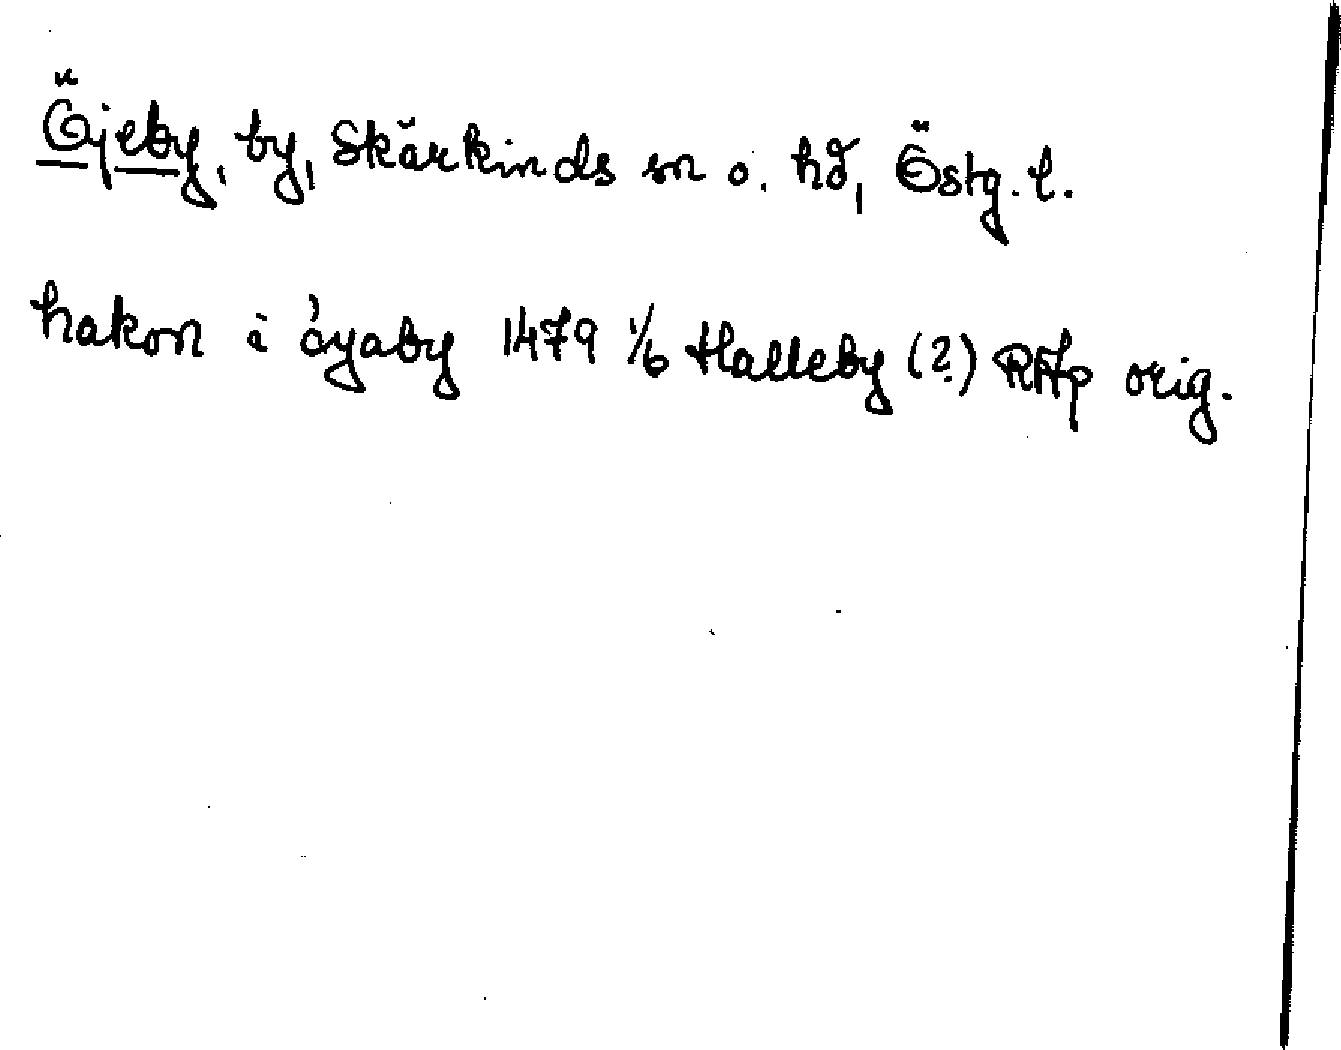 Öjeby, by, Skärkinds sn o. hd, Östg. l.
hakon i óyaby 1479 1/6 Halleby (?) RAp orig.